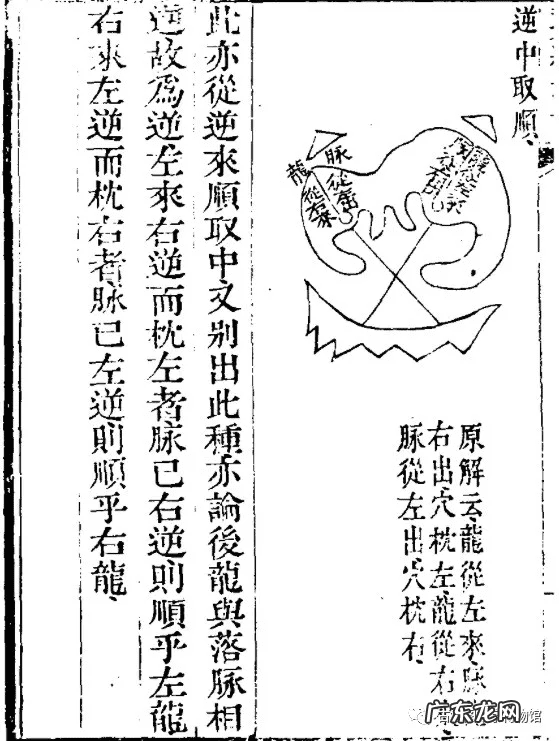 逆中取順
脉從左出
龍從右來
原解云龍從左來脉
右出穴枕左龍從右
脉從左出穴枕右
此亦從逆來順取中又别出此種亦論後龍與落脉相
逆故爲逆左來右逆而枕左者脉已右逆則順乎左龍
右來左逆而枕右者脉已左逆則順乎右龍
物馆
广东龙网